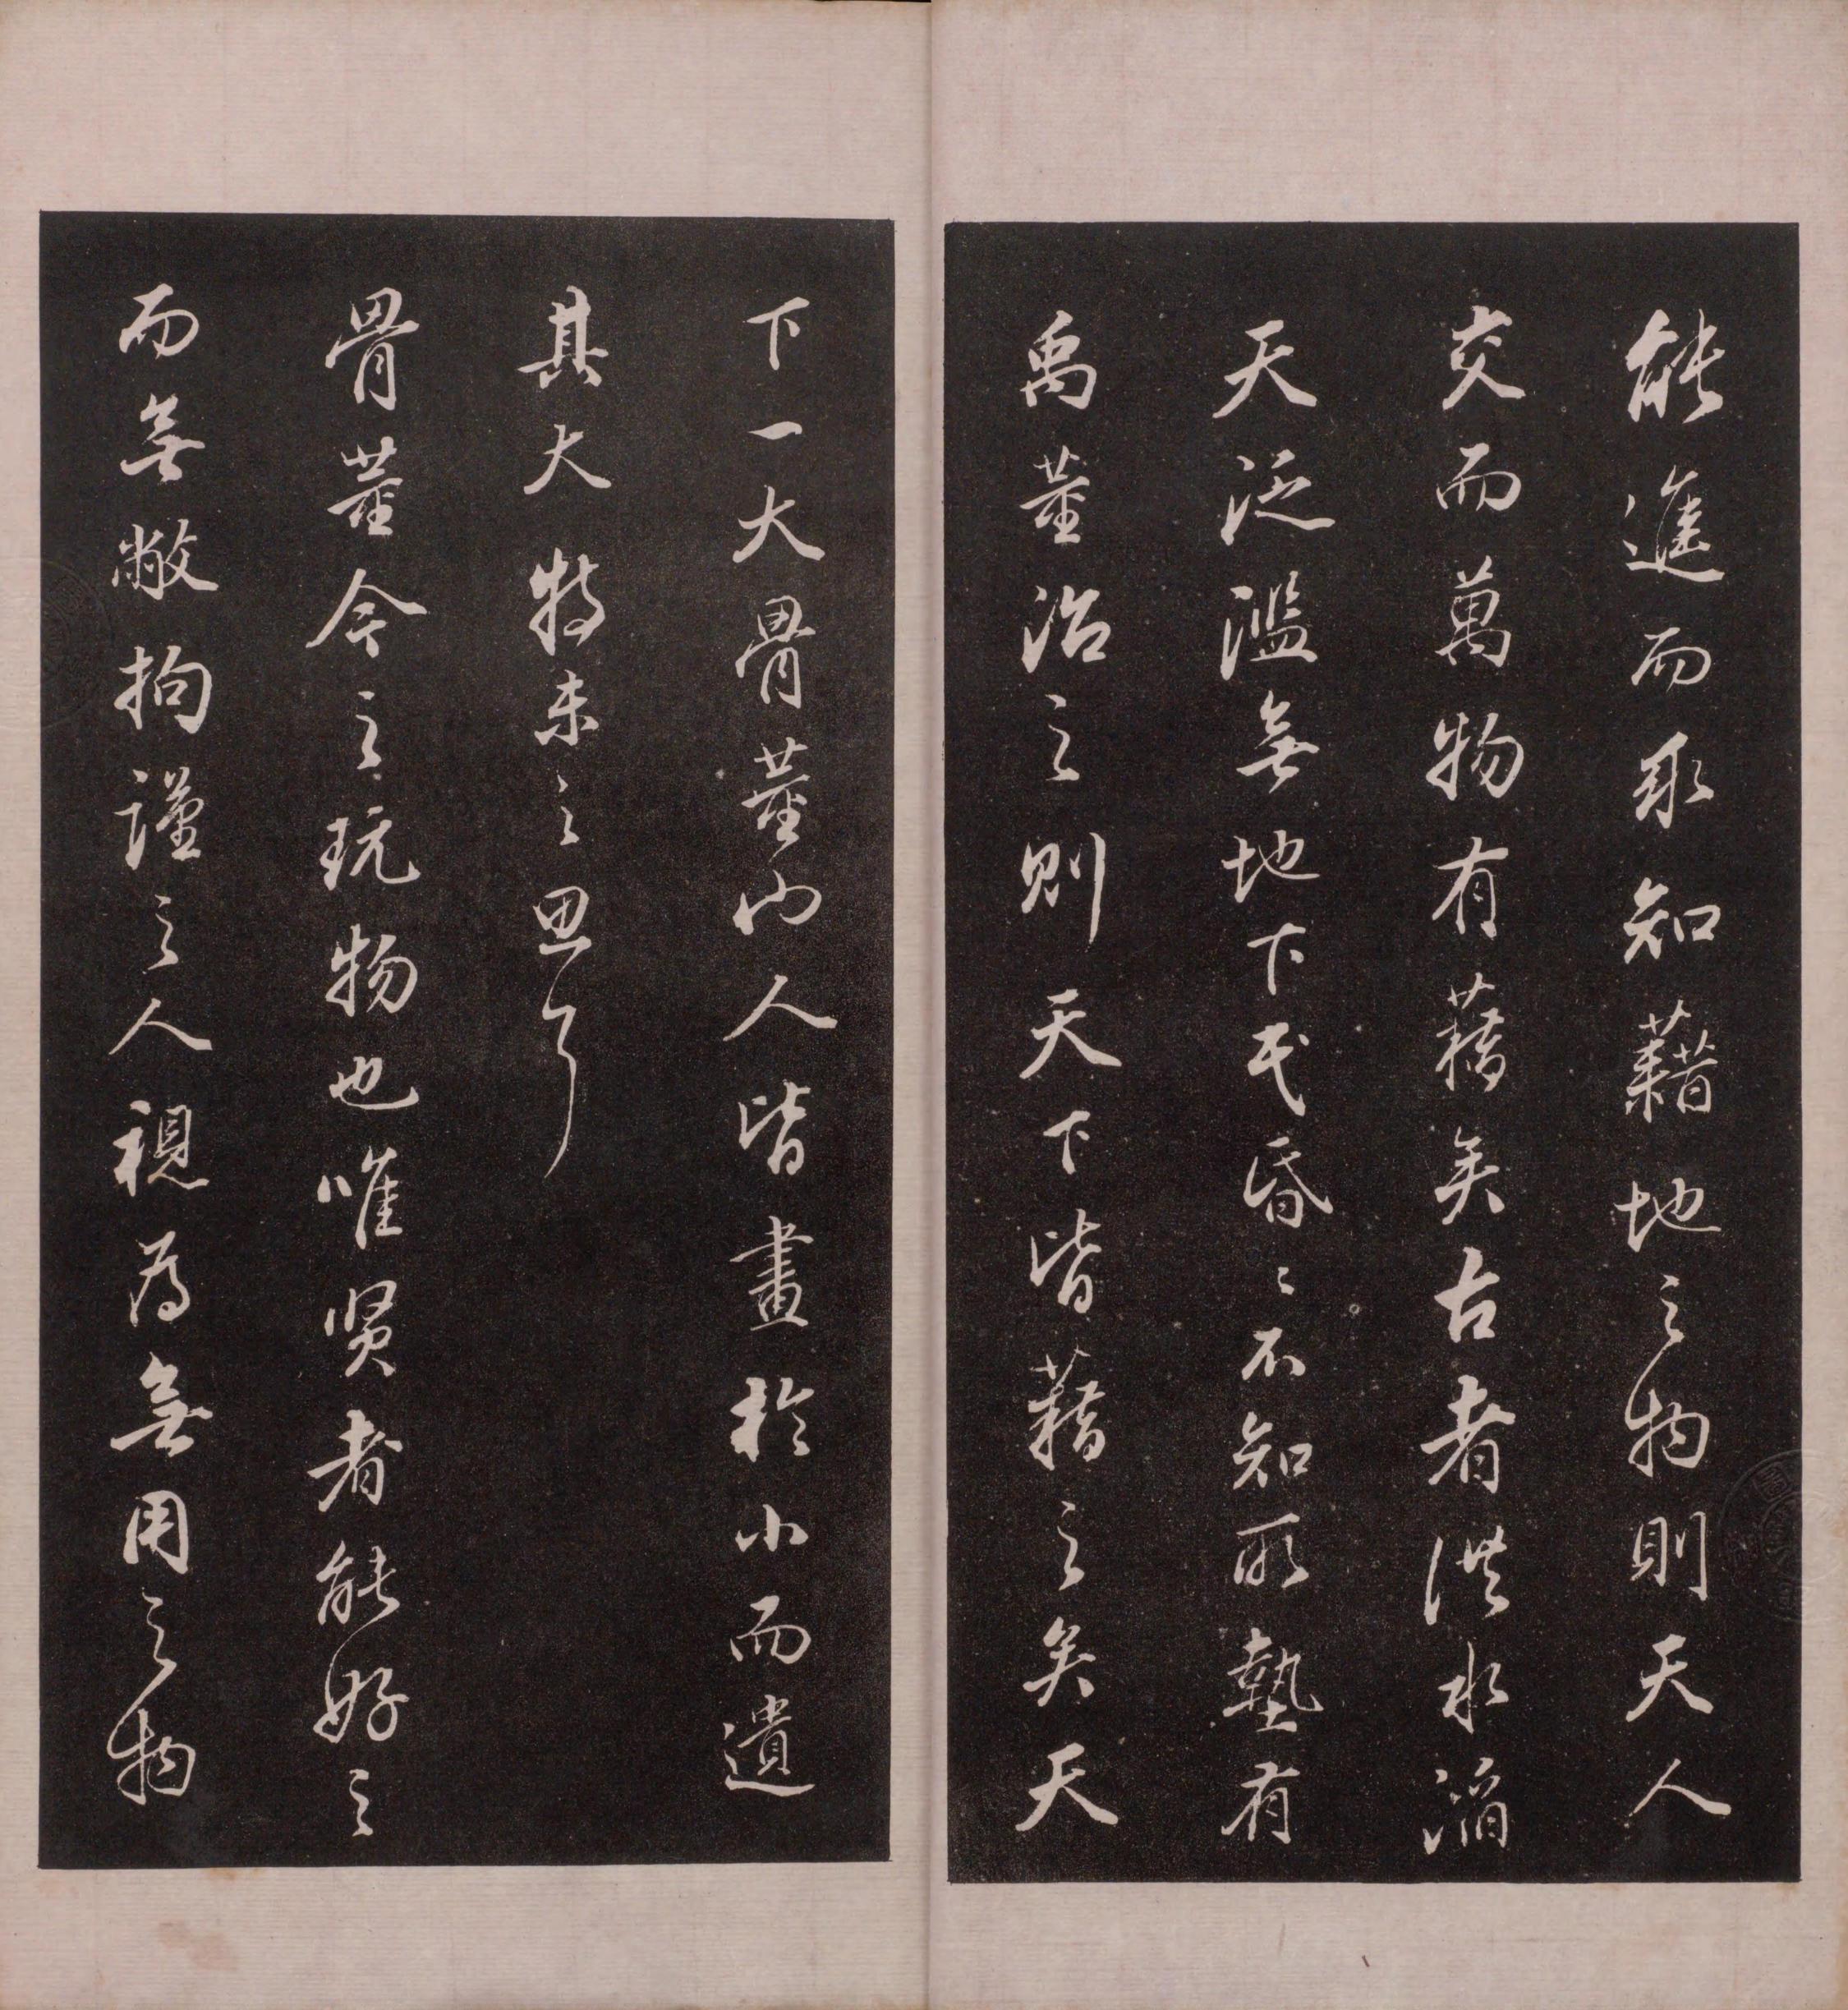 能進而求知藉地之物則天人
交而萬物有藉矣古者洪水滔
天泛濫無地下民昏〻不知所墊有
禹董治之則天下皆藉之矣天
下一大骨董山人皆畫於小而遺
其大特未之思耳
骨董今之玩物也唯賢者能好之
而無敝拘謹之人視為無用之物